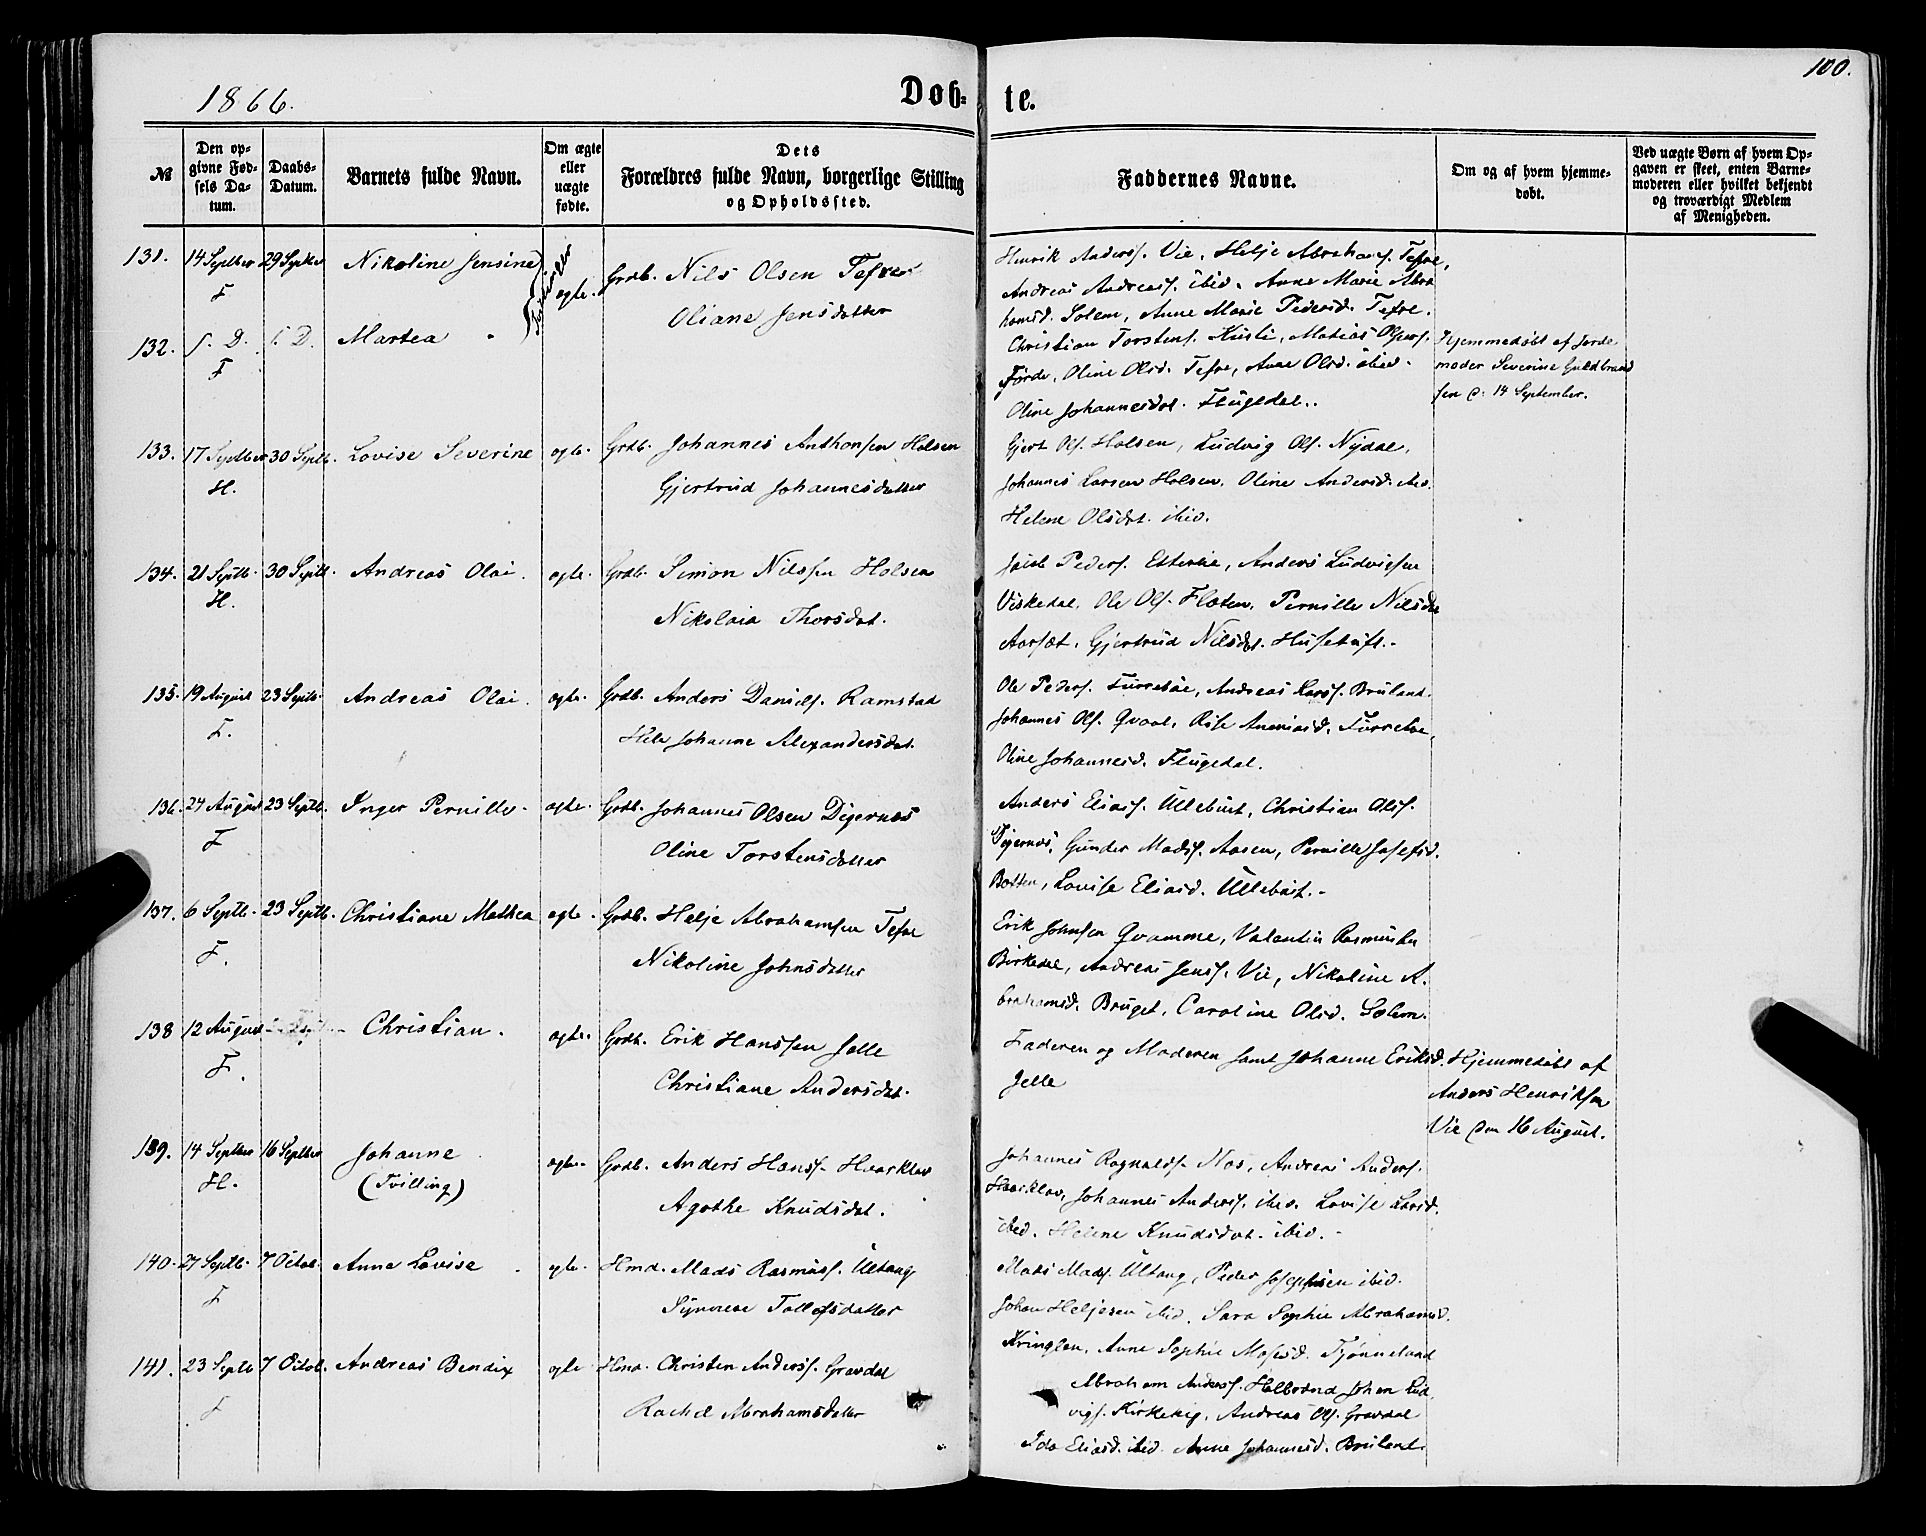 100.
1866.
Døb-
te.
№
Den op-
givne Fød-
sels Da-
tum.
Daabs-
Datum.
Varnets fulde Navn.
Om ægte
eller
uægte
fødte.
Dets
Forældres fulde Navn, borgerlige Stilling
og Opholdssted.
Faddernes Navne.
Om og af hvem hjemme-
døbt.
Ved uægte Børn af hvem Op-
gaven er skeet, enten Barne-
moderen eller hvilket bekjendt
og troværdigt Medlem
af Menigheden.
131. 14 Septber 29 Septber Nikoline Jensine ægte. Grdb. Nils Olsen Tefre
F
Oliane Jensdatter
Henrik Anders. Vie, Helje Abrahams. Tefre,
Andreas Andreas. ibid. Anne Marie Abra
hamsd. Solem, Anne Marie Pedersd. Tefre.
132. s. D. s. D. Martea
F
Christian Torstens. Kusli, Matias Olsens.
Førde, Oline Olsd. Tefre, Anne Olsd. ibid.
Oline Johannesdat. Flugedal.
Hjemmedøbt af Jorde
moder Severine Guldbrand
sen d: 14 September.
133. 17 Septber 30 Septb. Lovise Severine ægte. Grdb. Johannes Anthonsen Holsen
H.
Gjertrud Johannesdatter
Gjert Ols. Holsen, Ludvig Ols. Nydal,
Johannes Larsen Holsen, Oline Andersd. ibid.
Helene Olsdat. ibid.
134. 21 Septb. 30 Septb. Andreas Olai. ægte. Grdb. Simon Nilssen Holsen
H.
Nikolaia Thorsdat.
Jacob Peders. Esterlie, Anders Ludvigsen
Viskedal, Ole Ols. Floten, Pernille Nilsdat
Aarsæt, Gjertrud Nilsdat. Husetuft.
135. 19 August 23 Septb. Andreas Olai. ægte. Grdb. Anders Daniels. Ramstad
F.
Hele Johanne Alexandersdat.
Ole Peders. Furrebøe, Andreas Lars. Bruland.
Johannes Ols. Qvaal, Rise Ananiasd. Furrebøe,
Oline Johannesd. Flugedal.
136. 24 August 23 Septb. Inger Pernille. ægte. Grdb. Johannes Olsen Digernæs
F
Oline Torstensdatter
Anders Elias. Ullebust, Christian Ols.
Digernæs, Gunder Mads. Aasen, Pernille Josefsd.
Botten, Lovise Eliasd. Ullebust.
137. 6 Septb. 23 Septb. Christiane Mathea ægte. Grdb. Helje Abrahamsen Tefre
F.
Nikoline Johnsdatter
Erik Johnsen Qvamme, Valentin Rasmussen
Birkedal, Andreas Jens. Vie, Nikoline A.
brahamsd. Bruget, Caroline Olsd. Solem.
138 12 August Christian. ægte. Grdb. Erik Hanssen Jelle
F.
Christiane Andersdat.
Faderen og Moderen samt Johanne Eriksd.
Jelle
Hjemmedøbt af
Anders Henriksen
Vie den 16 August.
139. 14 Septber 16 Septber Johanne ægte. Grdb. Anders Hans. Haarklau
H.
(Tvilling)
Agothe Knudsdat.
Johannes Ragnalds. Nos, Andreas Anders.
Haarklau, Johannes Anders. ibid. Lovise Larsd.
ibid. Helene Knudsdat. ibid.
140. 27 Septb. 7 Octob. Anne Lovise ægte. Hmd. Mads Rasmus. Ultang
F
Synneve Tollefsdatter
Mads Mads. Ultang, Peder Josephsen ibid.
Johan Heljesen ibid. Sara Sophie Abrahamsd.
Kringlen, Anne Sophie Mosesd. Tjønneland
141. 23 Septb 7 Octob. Andreas Bendix ægte Hmd. Christen Anders. Gravdal
F
Rachel Abrahamsdatter
Abraham Anders. Halbrend Johan Lud
vigs. Kirkeeig, Andreas Ols. Gravdal
Ida Eliasd. ibid. Anne Johannesd. Bruland.